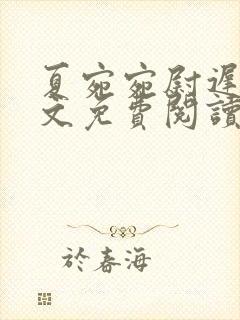 夏宛宛尉遲
文免費閱讀
於春海